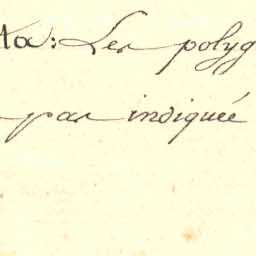 ta: Les polyg
pas indiquée